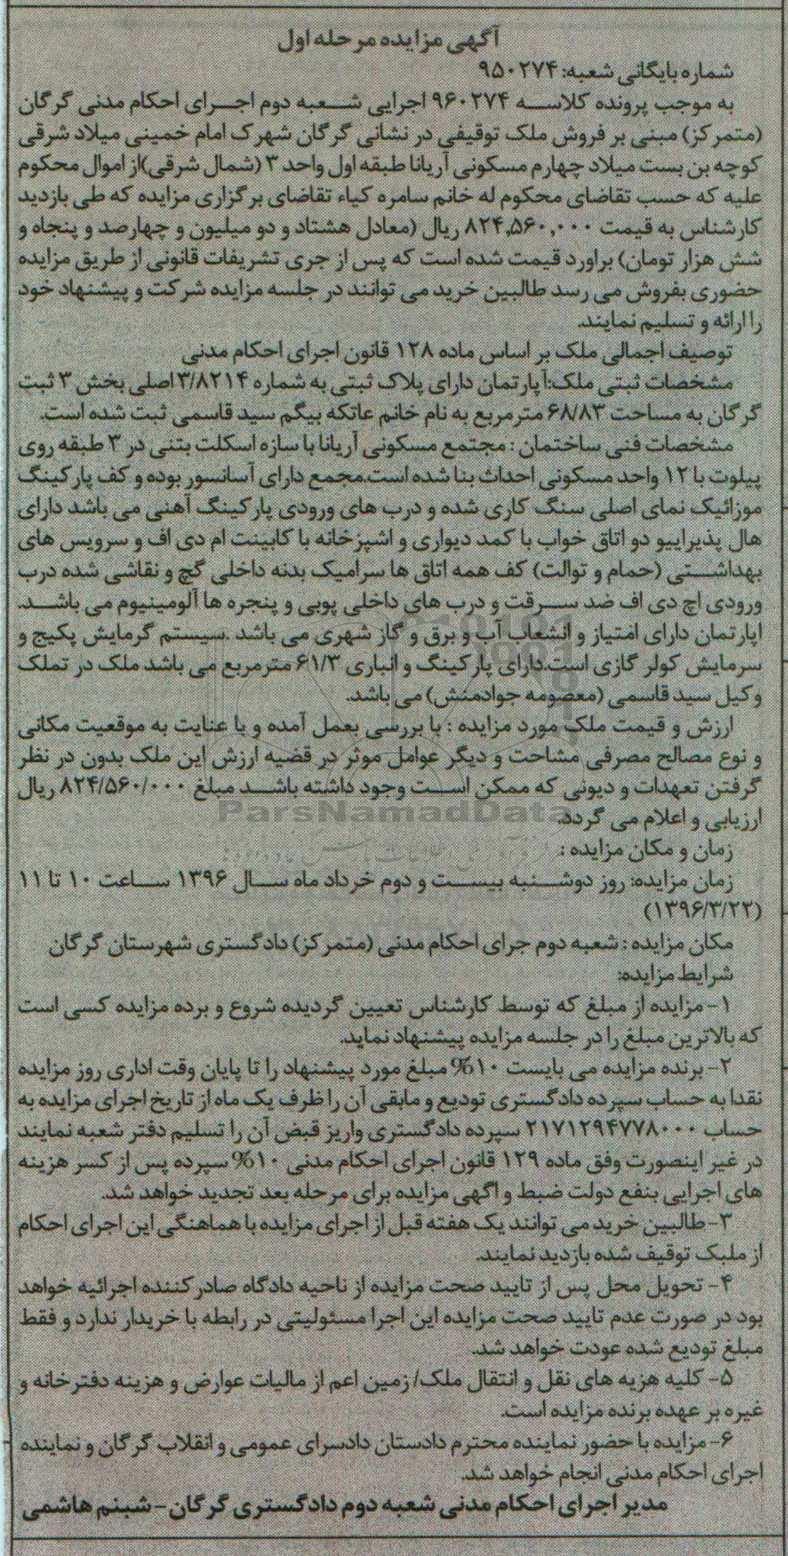 آگهی مزایده مرحله اول
شماره بایگانی شعبه: ۹۵۰۲۷۴
به موجب پرونده کلاسه ۹۶۰۲۷۴ اجرایی شعبه دوم اجرای احکام مدنی گرگان
(متمرکز) مبنی بر فروش ملک توقیفی در نشانی گرگان شهرک امام خمینی میلاد شرقی
کوچه بن بست میلاد چهارم مسکونی آریانا طبقه اول واحد ۳ (شمال شرقی)از اموال محکوم
علیه که حسب تقاضای محکوم له خانم سامره کیاء تقاضای برگزاری مزایده که طی بازدید
کارشناس به قیمت ۸۲۴,۵۶۰,۰۰۰ ریال (معادل هشتاد و دو میلیون و چهارصد و پنجاه و
شش هزار تومان) براورد قیمت شده است که پس از جری تشریفات قانونی از طریق مزایده
حضوری بفروش می رسد طالبین خرید می توانند در جلسه مزایده شرکت و پیشنهاد خود
را ارائه و تسلیم نمایند.
توصیف اجمالی ملک بر اساس ماده ۱۲۸ قانون اجرای احکام مدنی
مشخصات ثبتی ملک:آپارتمان دارای پلاک ثبتی به شماره ۳/۸۲۱۴اصلی بخش ۳ ثبت
گرگان به مساحت ۶۸/۸۳ مترمربع به نام خانم عاتکه بیگم سید قاسمی ثبت شده است.
مشخصات فنی ساختمان : مجتمع مسکونی آریانا با سازه اسکلت بتنی در ۳ طبقه روی
پیلوت با ۱۲ واحد مسکونی احداث بنا شده است.مجمع دارای آسانسور بوده و کف پارکینگ
موزائیک نمای اصلی سنگ کاری شده و درب های ورودی پارکینگ آهنی می باشد دارای
هال پذیراییو دو اتاق خواب با کمد دیواری و اشپزخانه با کابینت ام دی اف و سرویس های
بهداشتی (حمام و توالت) کف همه اتاق ها سرامیک بدنه داخلی گچ و نقاشی شده درب
ورودی اچ دی اف ضد سرقت و درب های داخلی پویی و پنجره ها آلومینیوم می باشد.
اپارتمان دارای امتیاز و انشعاب آب و برق و گاز شهری می باشد .سیستم گرمایش پکیج و
سرمایش کولر گازی است.دارای پارکینگ و انباری ۶۱/۳ مترمربع می باشد ملک در تملک
وکیل سید قاسمی (معصومه جوادمنش) می باشد.
ارزش و قیمت ملک مورد مزایده : با بررسی بعمل آمده و با عنایت به موقعیت مکانی
و نوع مصالح مصرفی مشاحت و دیگر عوامل موثر در قضیه ارزش این ملک بدون در نظر
گرفتن تعهدات و دیونی که ممکن است وجود داشته باشد مبلغ ۸۲۴/۵۶۰/۰۰۰ ریال
ارزیابی و اعلام می گردد.
ParsNamadData
زمان و مکان مزایده :
زمان مزایده: روز دوشنبه بیست و دوم خرداد ماه سال ۱۳۹۶ ساعت ۱۰ تا ۱۱
(۱۳۹۶/۳/۲۲)
مکان مزایده : شعبه دوم جرای احکام مدنی (متمرکز) دادگستری شهرستان گرگان
شرایط مزایده:
۱- مزایده از مبلغ که توسط کارشناس تعیین گردیده شروع و برده مزایده کسی است
که بالاترین مبلغ را در جلسه مزایده پیشنهاد نماید.
۲- برنده مزایده می بایست ۱۰% مبلغ مورد پیشنهاد را تا پایان وقت اداری روز مزایده
نقدا به حساب سپرده دادگستری تودیع و مابقی آن را ظرف یک ماه از تاریخ اجرای مزایده به
حساب ۲۱۷۱۲۹۴۷۷۸۰۰۰ سپرده دادگستری واریز قبض آن را تسلیم دفتر شعبه نمایند
در غیر اینصورت وفق ماده ۱۲۹ قانون اجرای احکام مدنی ۱۰% سپرده پس از کسر هزینه
های اجرایی بنفع دولت ضبط و اگهی مزایده برای مرحله بعد تجدید خواهد شد.
۳- طالبین خرید می توانند یک هفته قبل از اجرای مزایده با هماهنگی این اجرای احکام
از ملبک توقیف شده بازدید نمایند.
۴- تحویل محل پس از تایید صحت مزایده از ناحیه دادگاه صادر کننده اجرائیه خواهد
بود در صورت عدم تایید صحت مزایده این اجرا مسئولیتی در رابطه با خریدار ندارد و فقط
مبلغ تودیع شده عودت خواهد شد.
۵- کلیه هزیه های نقل و انتقال ملک/ زمین اعم از مالیات عوارض و هزینه دفترخانه و
غیره بر عهده برنده مزایده است.
۶- مزایده با حضور نماینده محترم دادستان دادسرای عمومی و انقلاب گرگان و نماینده
اجرای احکام مدنی انجام خواهد شد.
مدیر اجرای احکام مدنی شعبه دوم دادگستری گرگان- شبنم هاشمی